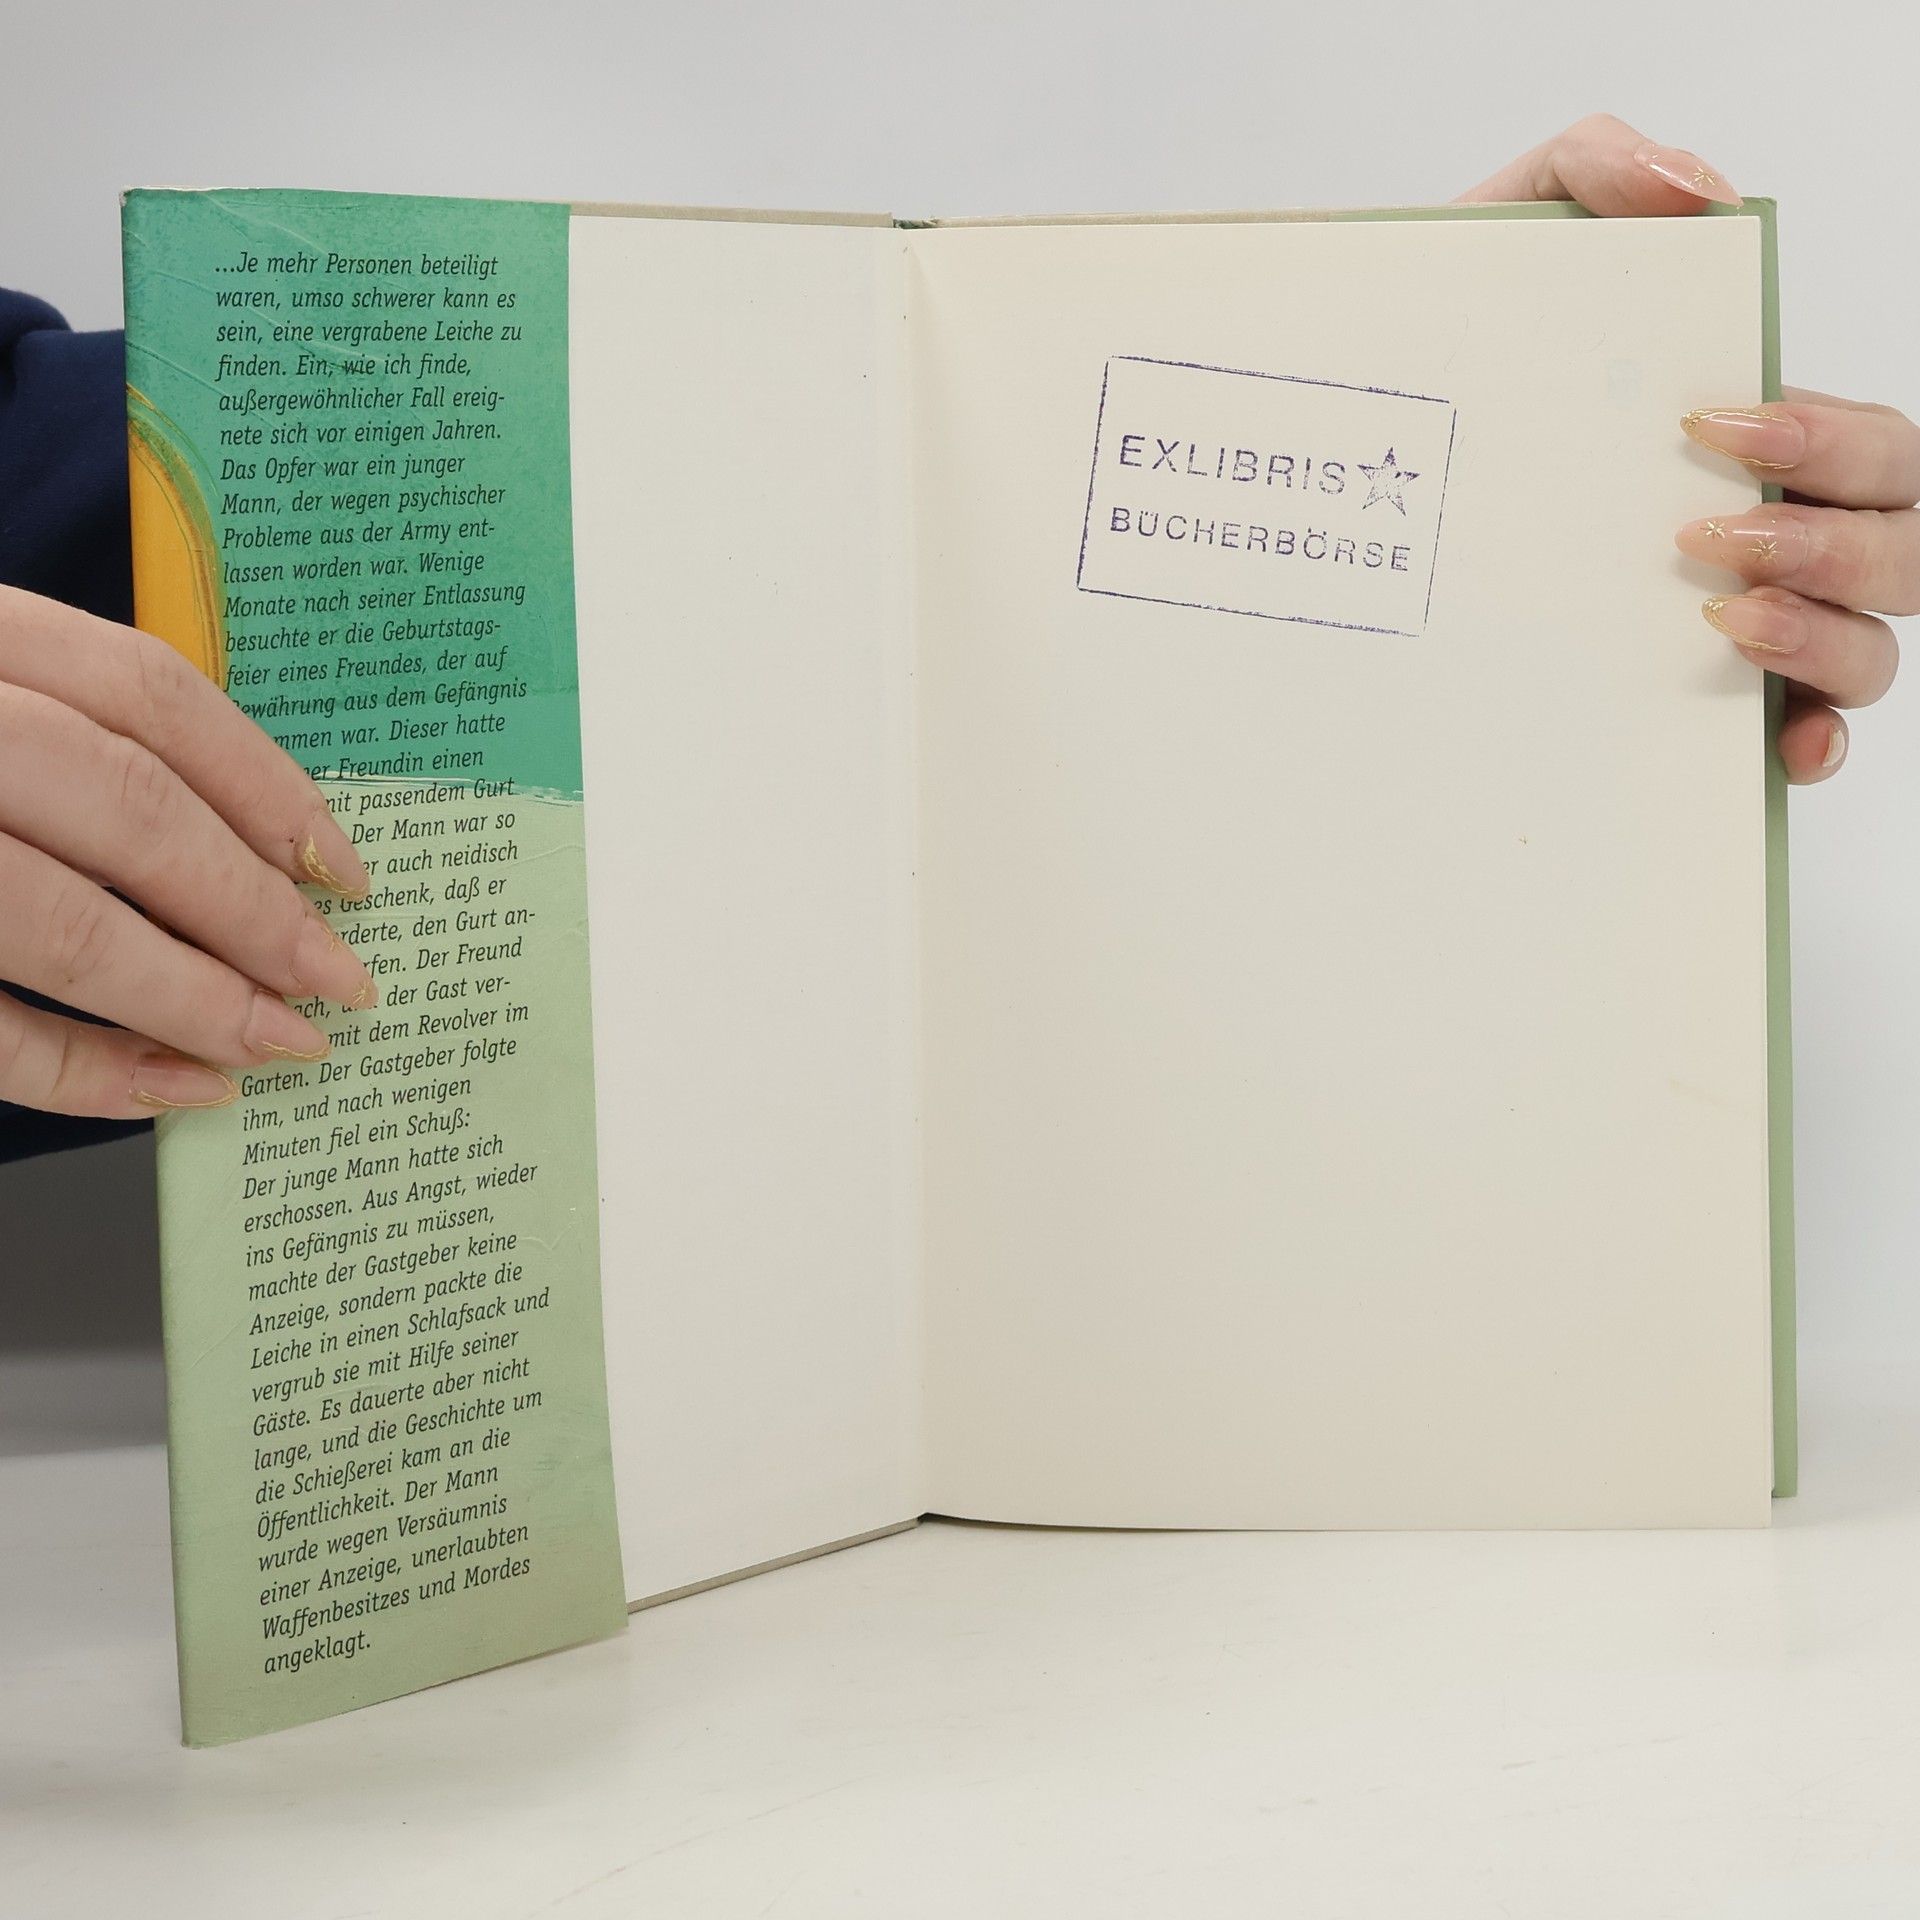 ...Je mehr Personen beteiligt
waren, umso schwerer kann es
sein, eine vergrabene Leiche zu
finden. Ein, wie ich finde,
außergewöhnlicher Fall ereig-
nete sich vor einigen Jahren.
Das Opfer war ein junger
Mann, der wegen psychischer
Probleme aus der Army ent-
lassen worden war. Wenige
Monate nach seiner Entlassung
besuchte er die Geburtstags-
feier eines Freundes, der auf
Bewährung aus dem Gefängnis
war. Dieser hatte
Freundin einen
mit passendem Gurt
Der Mann war so
auch neidisch
Geschenk, daß er
den Gurt an-
Der Freund
der Gast ver-
mit dem Revolver im
Garten. Der Gastgeber folgte
ihm, und nach wenigen
Minuten fiel ein Schuß:
Der junge Mann hatte sich
erschossen. Aus Angst, wieder
ins Gefängnis zu müssen,
machte der Gastgeber keine
Anzeige, sondern packte die
Leiche in einen Schlafsack und
vergrub sie mit Hilfe seiner
Gäste. Es dauerte aber nicht
lange, und die Geschichte um
die Schießerei kam an die
Öffentlichkeit. Der Mann
wurde wegen Versäumnis
einer Anzeige, unerlaubten
Waffenbesitzes und Mordes
angeklagt.
EXLIBRIS
BÜCHERBÖRSE